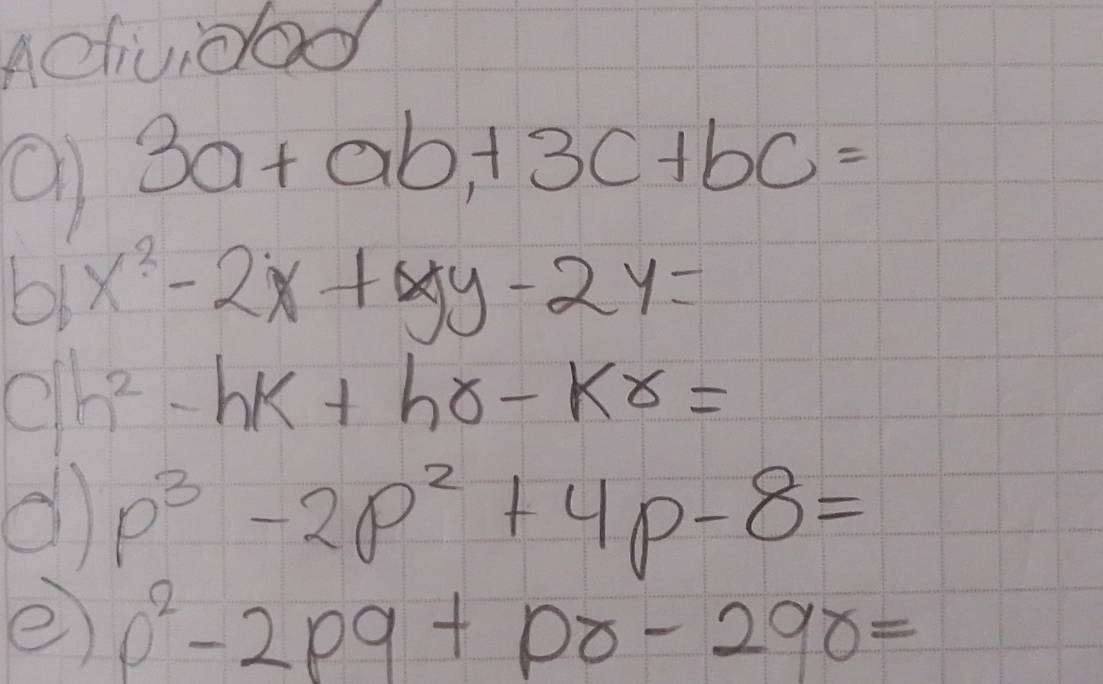 Actividad
a) 3a + ab + 3c + bc =
b) x² - 2x + xy - 2y =
c) h² - hk + hr - kr =
d) p³ - 2p² + 4p - 8 =
e) p² - 2pq + pr - 2qr =